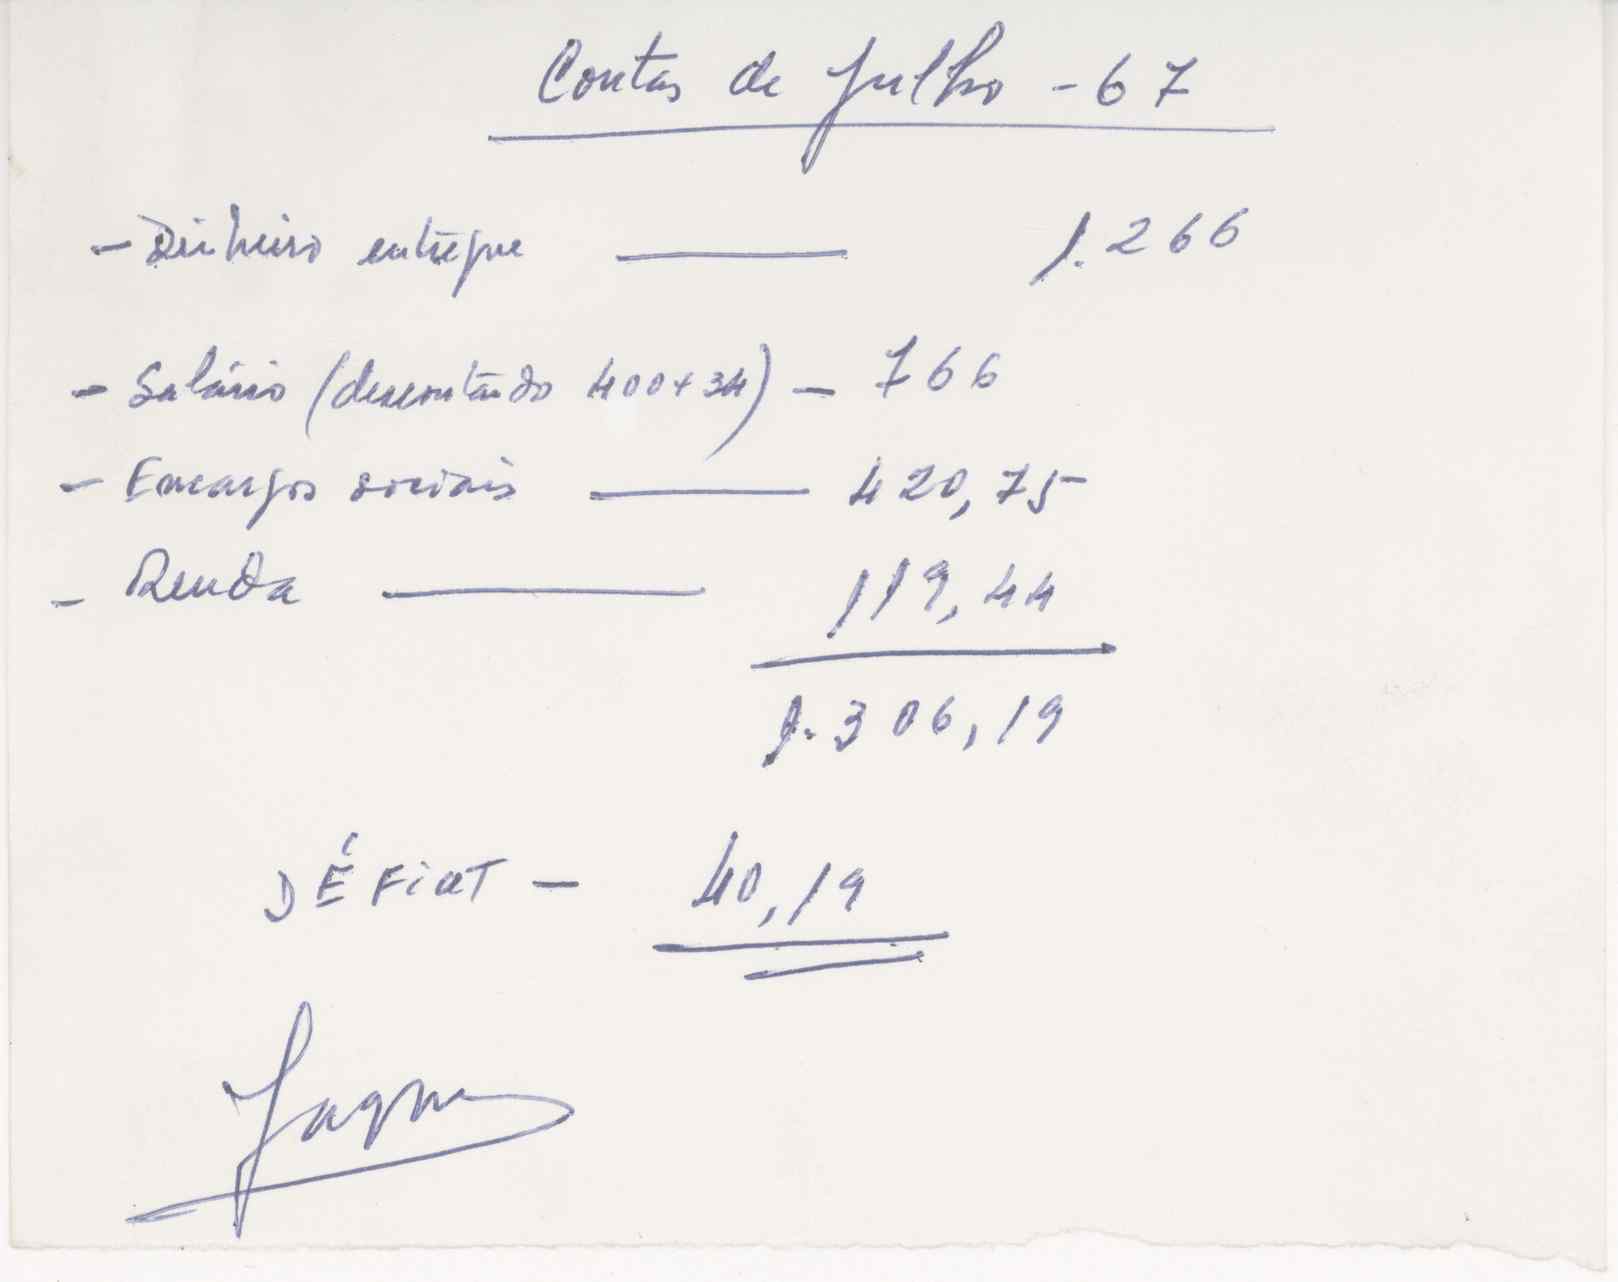 Contas de Julho - 67
- Dinheiro entregue — 1.266
- Salário (descontando 400+34) — 766
- Encargos sociais — 420,75
- Renda — 119,44
1.306,19
DÉFICIT — 40,19